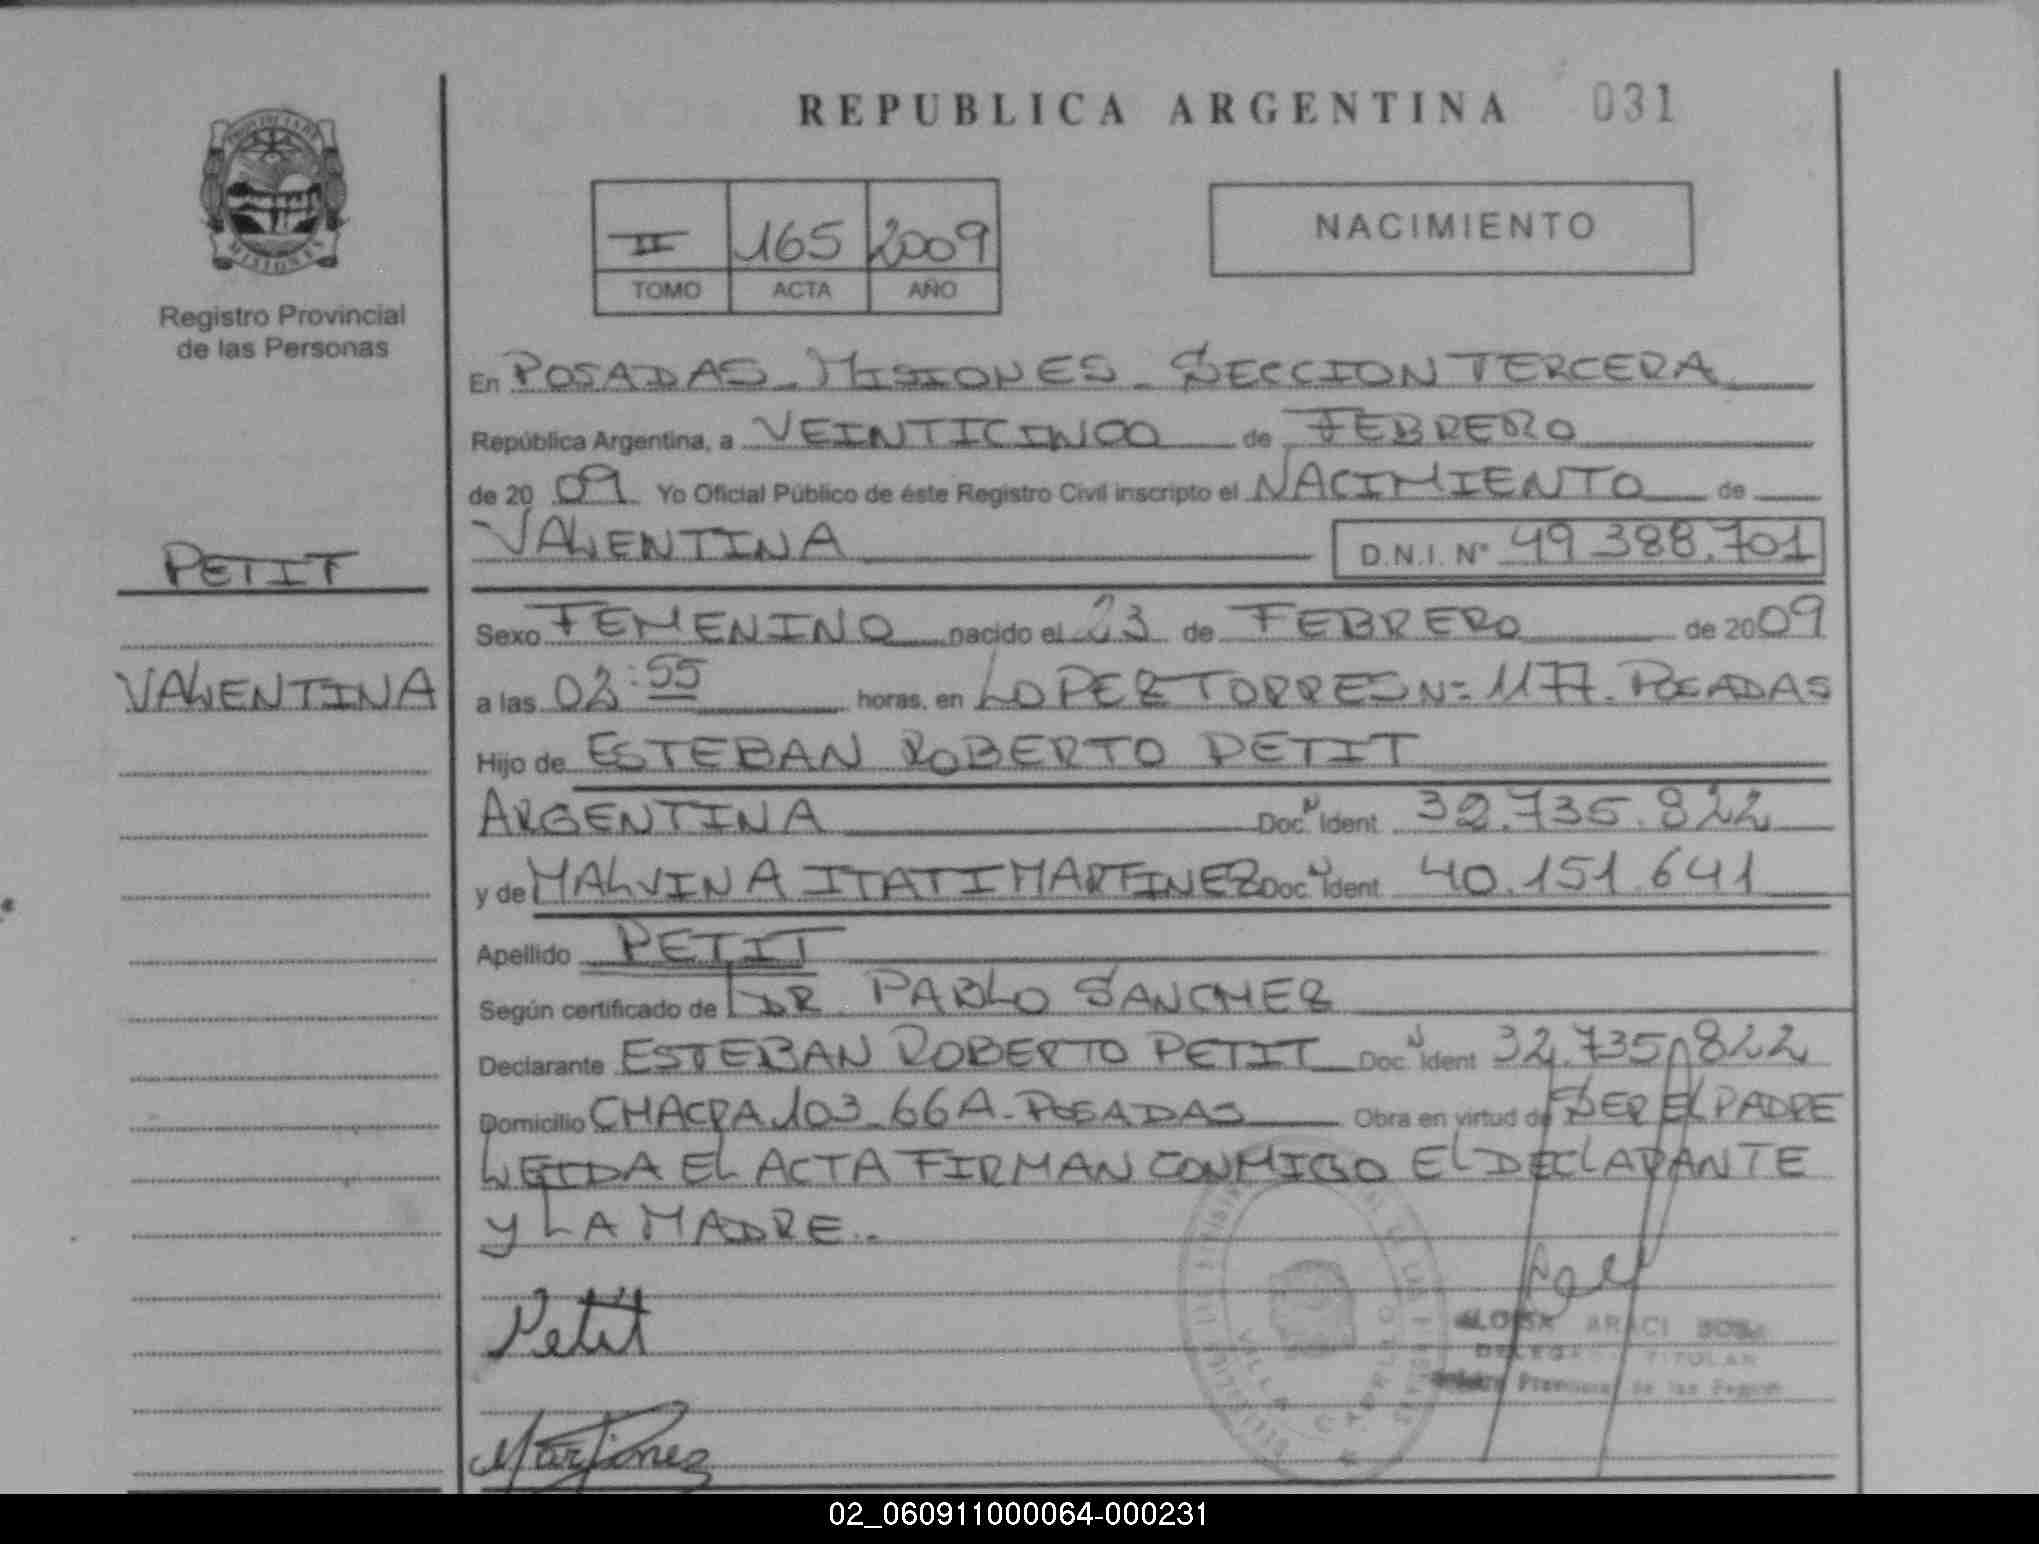 REPUBLICA ARGENTINA 031
PROVINCIA DE
MISIONES
Registro Provincial
de las Personas
II 165 2009
TOMO ACTA AÑO
NACIMIENTO
En POSADAS - MISIONES - SECCION TERCERA
República Argentina, a VEINTICINCO de FEBRERO
de 20 09 Yo Oficial Público de éste Registro Civil inscripto el NACIMIENTO de
VALENTINA D.N.I. Nº 49 388.701
PETIT
VALENTINA
Sexo FEMENINO nacido el 23 de FEBRERO de 2009
a las 02:55 horas, en LOPEZ TORRES Nº 1177. POSADAS
Hijo de ESTEBAN ROBERTO PETIT
ARGENTINA Doc. Ident 32.735.822
y de MALVINA ITATI MARTINEZ Doc. Ident 40.151.641
Apellido PETIT
Según certificado de DR. PABLO SANCHEZ
Declarante ESTEBAN ROBERTO PETIT Doc. Ident 32.735.822
Domicilio CHACRA 103 - 66A - POSADAS Obra en virtud de SER EL PADRE
LEIDA EL ACTA FIRMAN CONMIGO EL DECLARANTE
Y LA MADRE.-
Petit
ARACI
TITULAR
de las
VILLA CABELLO
Martinez
02_060911000064-000231